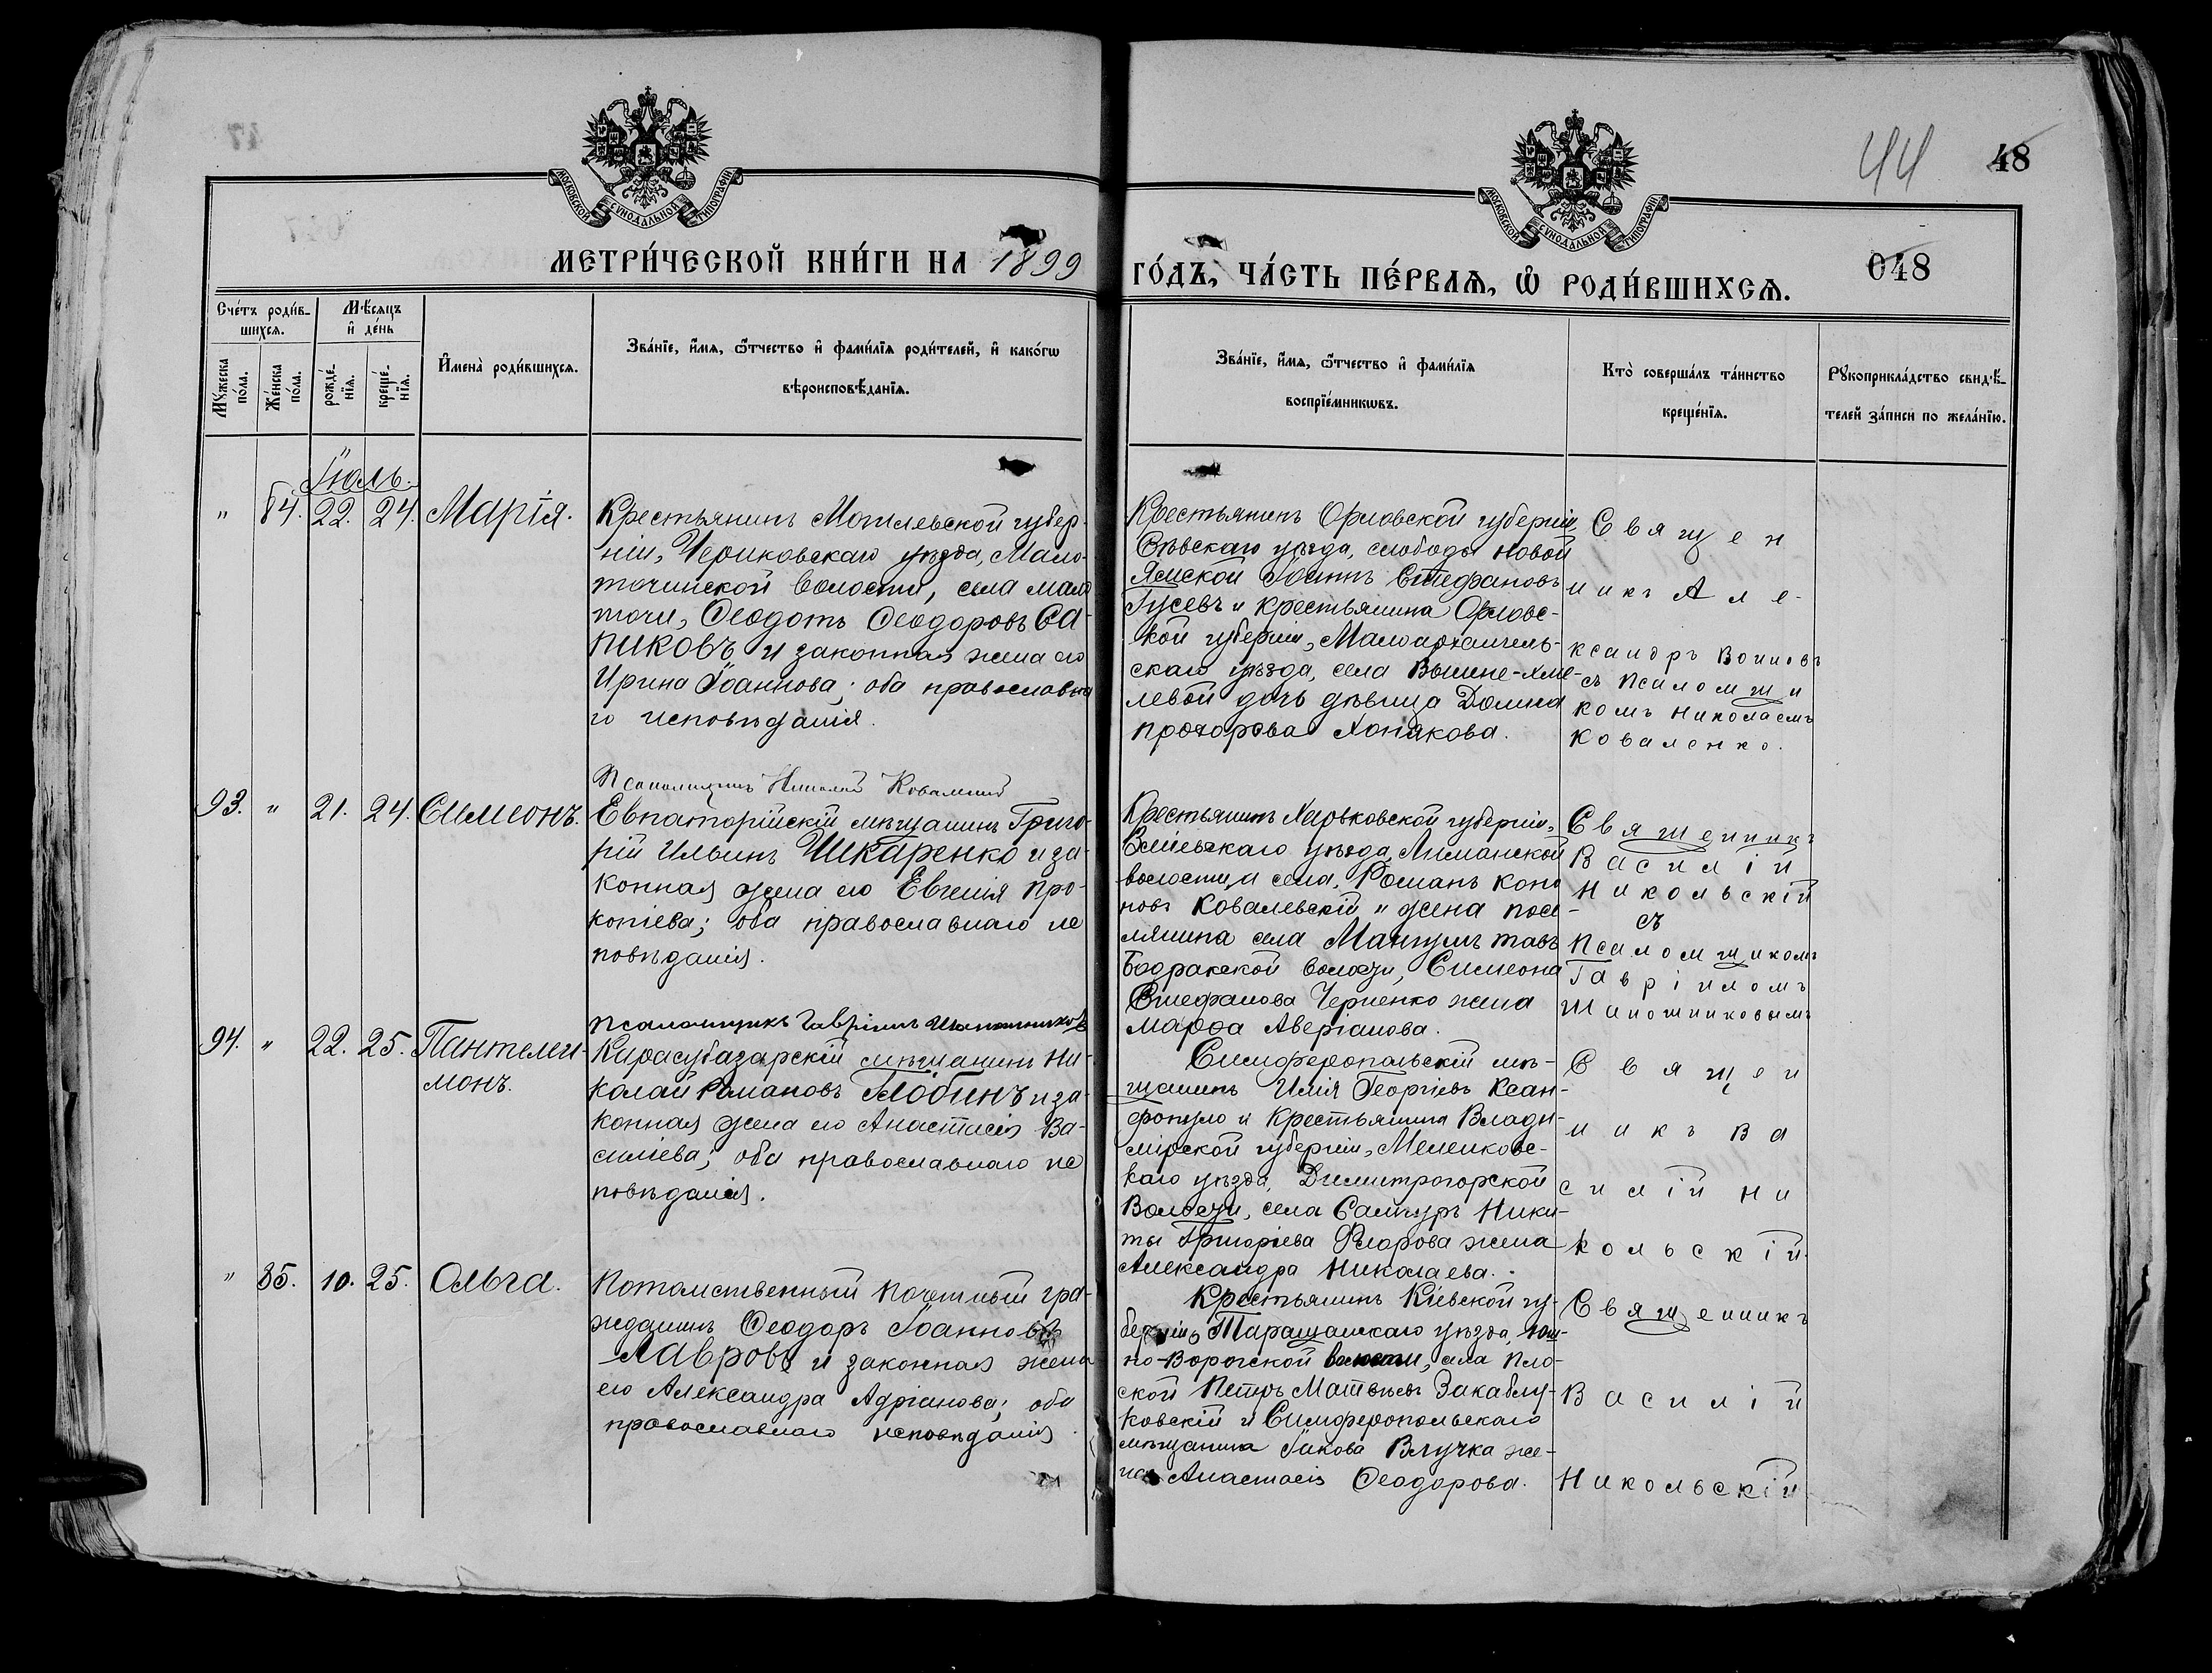 44
48
048
МОСКОВСКОЙ СУНОДАЛЬНОЙ ТИПОГРАФІИ
МОСКОВСКОЙ СУНОДАЛЬНОЙ ТИПОГРАФІИ
МЕТРИ́ЧЕСКОЙ КНИ́ГИ НА 1899
ГО́ДЪ, ЧА́СТЬ ПЕ́РВАѦ, Ѡ҆ РОДИ́ВШИХСѦ.
Сче́тъ роди́в-
шихсѧ.
Мѣ́сѧцъ
и҆ де́нь
Мꙋ́жеска
по́ла.
Же́нска
по́ла.
рожде́-
нїѧ.
креще́-
нїѧ.
И҆мена̀ роди́вшихсѧ.
Зва́нїе, и҆́мѧ, ѻ҆́тчество и҆ фами́лїѧ роди́телей, и҆ како́гѡ
вѣроисповѣ́данїѧ.
Зва́нїе, и҆́мѧ, ѻ҆́тчество и҆ фами́лїѧ
воспрїе́мникѡвъ.
Кто̀ соверша́лъ та́инство
креще́нїѧ.
Рꙋкоприкла́дство свидѣ́-
телей за́писи по жела́нїю.
Іюль.
" 84. 22. 24. Марія.
Крестьянинъ Могилевской губер-
ніи, Чериковскаго уѣзда, Мало-
точинской волости, села Мало
точи, Ѳеодотъ Ѳеодоровъ Са-
пиковъ и законная жена его
Ирина Іоаннова; оба православна
го исповѣданія.
Крестьянинъ Орловской губерніи,
Сѣвскаго уѣзда, слободы Новой
Ямской Іоаннъ Стефановъ
Гусевъ и крестьянина Орловс-
кой губерніи, Малоархангель-
скаго уѣзда, села Вышне-Хме-
левой дочь дѣвица Домна
Прохорова Хонякова.
Священ
никъ Але-
ксандръ Воиновъ
съ псаломщи
комъ Николаемъ
Коваленко.
Псаломщикъ Николай
93. " 21. 24. Симеонъ.
Евпаторійскій мѣщанинъ Григо-
рій Ильинъ Шкаренко и за-
конная жена его Евгенія Про-
копіева; оба православнаго ис
повѣданія.
Крестьянинъ Харьковской губерніи,
Зміевскаго уѣзда, Лиманской
волости и села, Романъ Коно
новъ Ковалевскій и жена посе-
лянина села Мангушъ тавъ
Бодракской волости, Симеона
Стефанова Черненко жена
Марѳа Аверіанова.
Священникъ
Василій
Никольскій
съ
Псаломщикомъ
Гавріиломъ
Шапошниковымъ
Псаломщикъ Гавріилъ Шапошниковъ
94. " 22. 25. Пантелеи-
монъ.
Карасубазарскій мѣщанинъ Ни-
колай Романовъ Лобинъ и за-
конная жена его Анастасія Ва-
силіева; оба православнаго ис
повѣданія.
Симферопольскій мѣ-
щанинъ Илія Георгіевъ Ксан-
фопуло и крестьянина Влади-
мірской губерніи, Меленковс-
каго уѣзда, Димитрогорской
Волости, села Санчуръ Ники-
ты Григоріева Фларова жена
Александра Николаева.
Священ
никъ Ва
силій Ни
кольскій.
" 85. 10. 25. Ольга.
Потомственный почетный гра-
жданинъ Ѳеодоръ Іоанновъ
Лавровъ и законная жена
его Александра Адріанова; оба
православнаго исповѣданія.
Крестьянинъ Кіевской гу-
берніи, Таращанскаго уѣзда,
волости, села Пло-
ской Петръ Матвѣевъ Закаблу-
ковскій и Симферопольскаго
мѣщанина Іакова Влучка же-
на Анастасія Ѳеодорова.
Священникъ
Василій
Никольскій